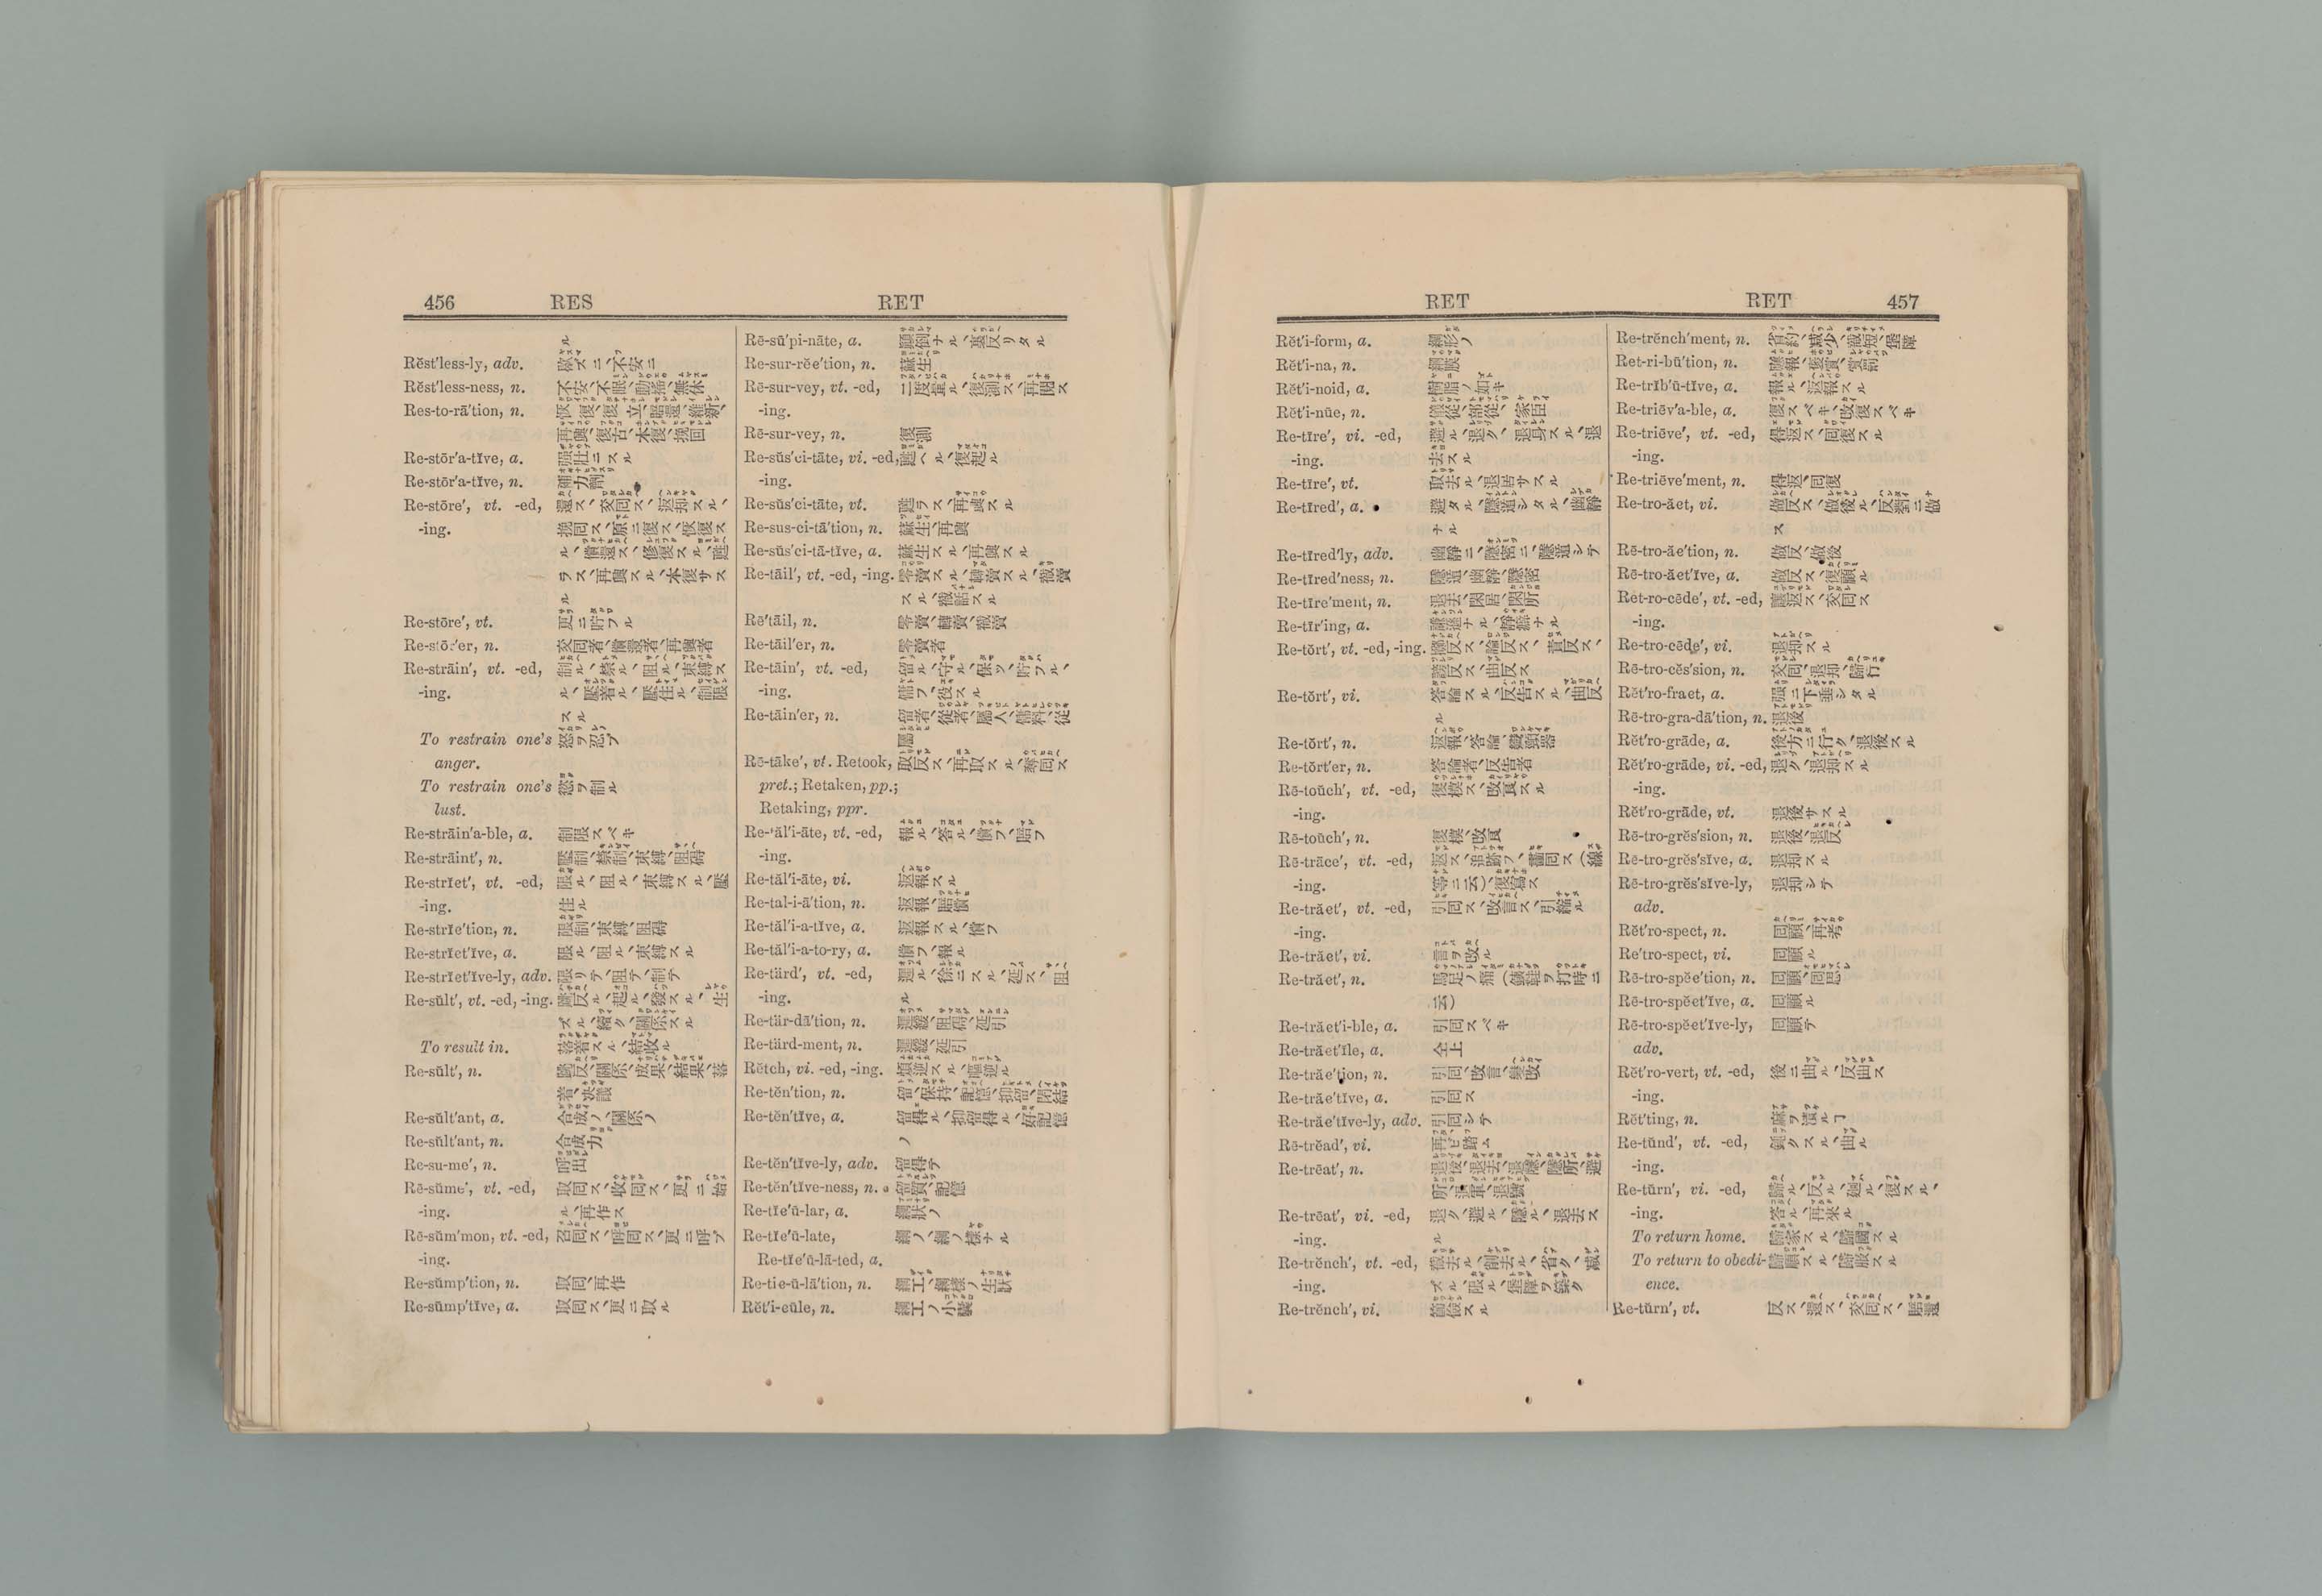 456 RES RET
ル
Rĕst′less-ly, adv. 歇ズニ、不安ニ
Rĕst′less-ness, n. 不安、不眠、動搖、無休
Res-to-rā′tion, n. 恢復、復立、賠還、維新、
再興、復古、本復、挽回
Re-stōr′a-tĭve, a. 强壯ニスル
Re-stōr′a-tĭve, n.
Re-stōre′, vt. -ed, 還ス、交回ス、返却スル、
-ing. 挽回ス、原ニ復ス、恢復ス
ル、償還ス、修復スル、甦
ラス、再興スル、本復サス
ル
Re-stōre′, vt. 更ニ貯フル
Re-stōr′er, n. 交回者、償還者、再興者
Re-strāin′, vt. -ed, 制ル、禁ル、阻ル、束縛ス
-ing. ル、壓着ル、壓住ル、制限
スル
To restrain one's 怒ヲ忍ブ
anger.
To restrain one's 慾ヲ制ル
lust.
Re-strāin′a-ble, a. 制限スベキ
Re-strāint′, n. 壓制、禁制、束縛、阻碍
Re-strĭet′, vt. -ed, 限ル、阻ル、束縛スル、壓
-ing. 住ル
Re-strĭe′tion, n. 限制、束縛、阻碍
Re-strĭet′ĭve, a. 限ル、阻ル、束縛スル
Re-strĭet′ĭve-ly, adv. 限リテ、阻テ、制テ
Re-sŭlt′, vt. -ed, -ing. 跳反ル、起ル、發スル、生
ズル、續ク、關係スル
To result in. 落着スル、結收ル
Re-sŭlt′, n. 跳反、關係、成果、結果、落
着、決議
Re-sŭlt′ant, a. 合成ノ、關係ノ
Re-sŭlt′ant, n. 合成力
Re-su-me′, n. 呼出
Rē-sūme′, vt. -ed, 取回ス、收回ス、更ニ始
-ing. ル、再作ス
Rē-sŭm′mon, vt. -ed, 召回ス、呼回ス、更ニ呼ブ
-ing.
Re-sŭmp′tion, n. 取回、再作
Re-sŭmp′tĭve, a. 取回ス、更ニ取ル
Rē-sū′pi-nāte, a. 顚倒ナル、裏反リタル
Re-sur-rĕe′tion, n. 蘇生
Rē-sur-vey, vt. -ed, 二度量ル、復測ス、再圖ス
-ing.
Rē-sur-vey, n. 復測
Re-sŭs′ci-tāte, vi. -ed, 甦ヘル、復起ル
-ing.
Re-sŭs′ci-tāte, vt. 甦ラス、再興スル
Re-sus-ci-tā′tion, n. 蘇生、再興
Re-sŭs′ci-tā-tĭve, a. 蘇生スル、再興スル
Re-tāil′, vt. -ed, -ing. 零賣スル、轉賣スル、徴賣
スル、徴話スル
Rē′tāil, n. 零賣、轉賣、徴賣
Re-tāil′er, n. 零賣者
Re-tāin′, vt. -ed, 留ル、守ル、保ツ、貯フル、
-ing. 傭フ、役スル
Re-tāin′er, n. 留者、從者、屬人、傭料、從
屬
Rē-tāke′, vt. Retook, 取反ス、再取スル、奪回ス
pret.; Retaken, pp.;
Retaking, ppr.
Re-tăl′i-āte, vt. -ed, 報ル、答ル、償フ、賠フ
-ing.
Re-tăl′i-āte, vi. 返報スル
Re-tal-i-ā′tion, n. 返報、賠償
Re-tăl′i-a-tĭve, a. 返報スル、償フ
Re-tăl′i-a-to-ry, a. 償フ、報ル
Re-tärd′, vt. -ed, 遲ル、徐ニスル、延ス、阻
-ing. ル
Re-tär-dā′tion, n. 遲緩、阻碍、延引
Re-tärd-ment, n. 遲緩、延引
Rĕtch, vi. -ed, -ing. 煩逆スル、嘔逆ル
Re-tĕn′tion, n. 留、保持、記憶、抑留、閉結
Re-tĕn′tĭve, a. 留得ル、抑留得ル、好記憶
ノ
Re-tĕn′tĭve-ly, adv. 留得テ
Re-tĕn′tĭve-ness, n. 留質、記憶
Re-tĭe′ū-lar, a. 網狀ノ
Re-tĭe′ū-late, 網ノ、網ノ樣ナル
Re-tĭe′ū-lā-ted, a.
Re-tie-ū-lā′tion, n. 網工、網樣ノ生狀
Rĕt′i-eūle, n. 網工ノ小袋
RET RET 457
Rĕt′i-form, a. 網形ノ
Rĕt′i-na, n. 網膜
Rĕt′i-noid, a. 樹脂ノ如キ
Rĕt′i-nūe, n. 儀從、部從、家臣
Re-tīre′, vi. -ed, 避ル、退ク、退身スル、退
-ing. 去スル
Re-tīre′, vt. 取去ル、退居サスル
Re-tīred′, a. 避タル、隱遁シタル、幽靜
ナル
Re-tīred′ly, adv. 幽靜ニ、隱密ニ、隱遁シテ
Re-tīred′ness, n. 隱遁、幽靜、隱密
Re-tīre′ment, n. 退去、閑居、閑所
Re-tīr′ing, a. 謙遜ナル、靜黙ナル
Re-tŏrt′, vt. -ed, -ing. 擲反ス、論反ス、責反ス、
諺反ス、曲反ス
Re-tŏrt′, vi. 答論スル、反告スル、曲反
ル
Re-tŏrt′, n. 返報、答論、彎頸器
Re-tŏrt′er, n. 答論者、反告者
Rē-toŭch′, vt. -ed, 復模ス、改良スル
-ing.
Rē-toŭch′, n. 復模、改良
Rē-trāce′, vt. -ed, 返ス、追跡フ、畫回ス(線
-ing. 等ニ云)、復寫ス
Re-trăet′, vt. -ed, 引回ス、改言ス、引縮ル
-ing.
Re-trăet′, vi. 言ヲ改ル
Re-trăet′, n. 馬足ノ痛(鐵鞋ヲ打時ニ
云)
Re-trăet′i-ble, a. 引回スベキ
Re-trăet′ĭle, a. 仝上
Re-trăe′tion, n. 引回、改言、變改
Re-trăe′tĭve, a. 引回ス
Re-trăe′tĭve-ly, adv. 引回シテ
Rē-trĕad′, vi. 再ビ踏ム
Re-trēat′, n. 退後、退去、退隱、隱所、避
所、退軍、退螺
Re-trēat′, vi. -ed, 退ク、避ル、隱ル、退去ス
-ing. ル
Re-trĕnch′, vt. -ed, 截去ル、削去ル、省ク、减
-ing. ズル、限ル、堡障ヲ築ク
Re-trĕnch′, vi. 節儉スル
Re-trĕnch′ment, n. 省約、减少、截短、堡障
Ret-ri-bū′tion, n. 應報、褒賞、賞罰
Re-trĭb′ū-tĭve, a. 報ル、返報スル
Re-triēv′a-ble, a. 復スベキ、改復スベキ
Re-triēve′, vt. -ed, 得返ス、回復スル
-ing.
Re-triēve′ment, n. 得返、回復
Re-tro-ăet, vi. 做反ス、做後ル、反對ニ做
ス
Rē-tro-ăe′tion, n. 做反、做後
Rē-tro-ăet′ĭve, a. 做反ス、復願ル
Ret-ro-cēde′, vt. -ed, 讓返ス、交回ス
-ing.
Re-tro-cēde′, vi. 退却スル
Rē-tro-cĕs′sion, n. 交回、退却、歸行
Rĕt′ro-fraet, a. 强ニ下垂シタル
Rē-tro-gra-dā′tion, n. 退後
Rĕt′ro-grāde, a. 後方ニ行ク、退後スル
Rĕt′ro-grāde, vi. -ed, 退ク、退却スル
-ing.
Rĕt′ro-grāde, vt. 退後サスル
Rē-tro-grĕs′sion, n. 退後、退反
Rē-tro-grĕs′sĭve, a. 退却スル
Rē-tro-grĕs′sĭve-ly, 退却シテ
adv.
Rĕt′ro-spect, n. 回顧、再考
Re′tro-spect, vi. 回顧ル
Rē-tro-spĕe′tion, n. 回顧、回思
Rē-tro-spĕet′ĭve, a. 回顧ル
Rē-tro-spĕet′ĭve-ly, 回顧テ
adv.
Rĕt′ro-vert, vt. -ed, 後ニ曲ル、反曲ス
-ing.
Rĕt′ting, n. 麻ヲ漬ルヿ
Re-tŭnd′, vt. -ed, 鈍クスル、曲ル
-ing.
Re-tŭrn′, vi. -ed, 歸ル、反ル、廻ル、復スル、
-ing. 答ル、再來ル
To return home. 歸家スル、歸國スル
To return to obedi- 歸順スル、歸服スル
ence.
Re-tŭrn′, vt. 反ス、還ス、交回ス、賠還